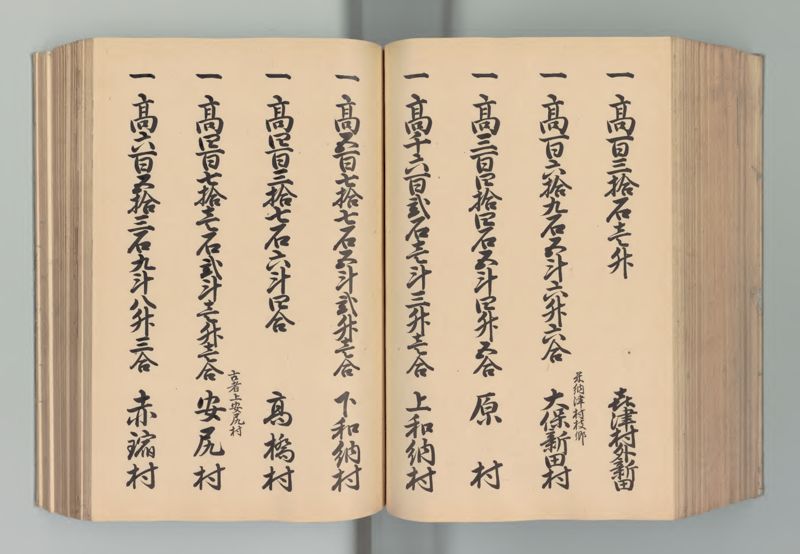 一 高百三拾石壱升 㐂津村外新田
一 高百六拾九石五斗六升六合 米納津村枝郷 大保新田村
一 高三百四拾四石五斗四升五合 原村
一 高千六百弐石壱斗三升壱合 上和納村
一 高五百七拾七石五斗弐升壱合 下和納村
一 高四百三拾七石六斗四合 高橋村
一 高四百七拾壱石弐斗壱升壱合 古者上安尻村 安尻村
一 高六百五拾三石九斗八升三合 赤鏥村